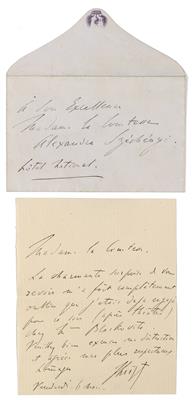 à Son Excellence
Madame la Comtesse
Alexandra Széchényi.
Hôtel National.
Madame la Comtesse.
La charmante surprise de vous
revoir m'a fait complètement
oublier que j'étais déjà engagé
pour ce soir (après théâtre)
chez
Veuillez bien excuser ma distraction
et agréer mes plus respectueux
hommages
FLiszt
Vendredi 6